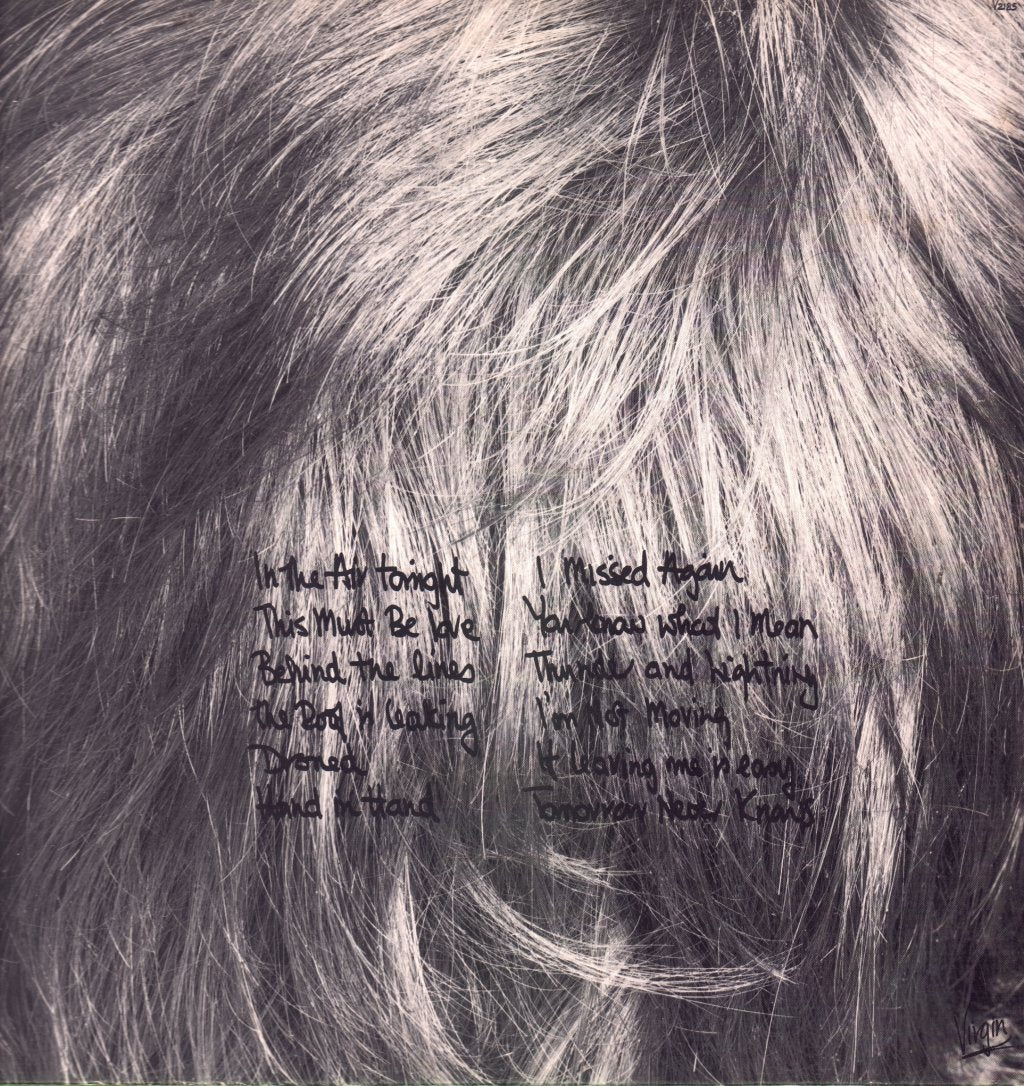 V2185
In the Air tonight
This Must Be love
Behind the lines
the Roof is leaking
Droned
Hand in Hand
I Missed Again
You know what I Mean
Thunder and Lightning
I'm Not Moving
If leaving me is easy
Tomorrow Never Knows
Virgin